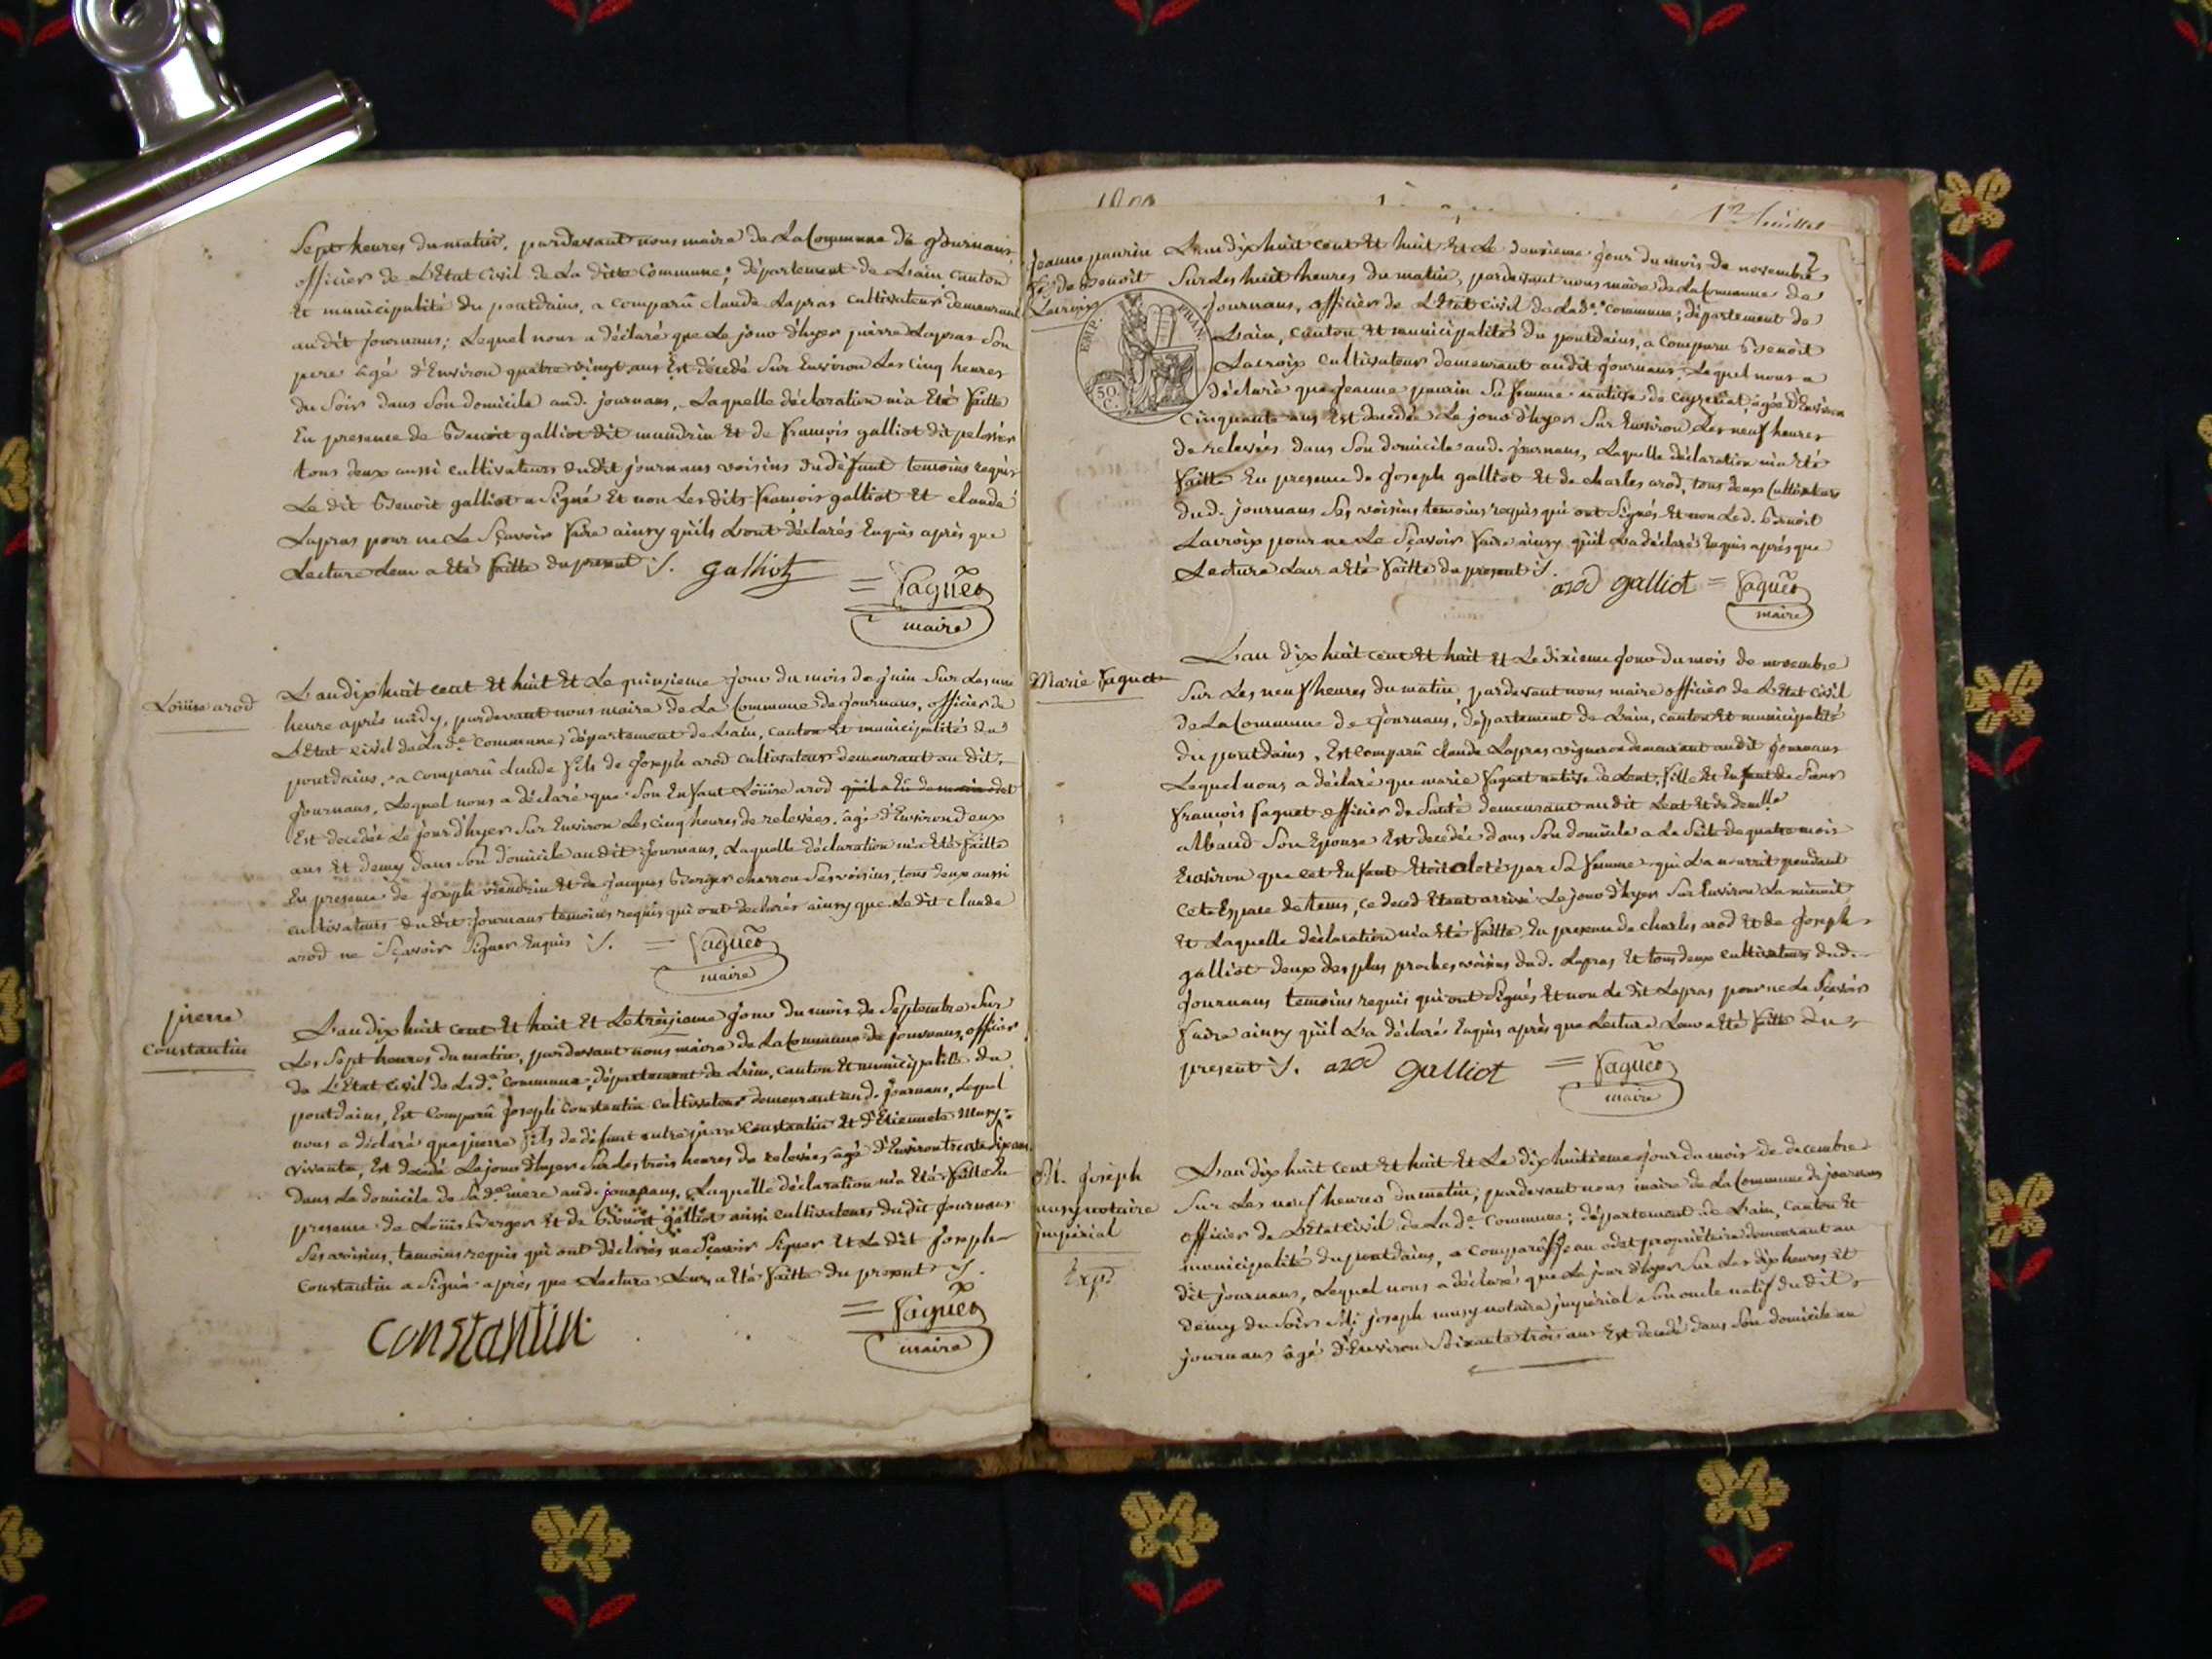 Sept heures du matin. pardevant nous maire de La Commune de journans
officier de L'Etat Civil de La ditte Commune; département de Lain, canton
Et municipalité du pontdains, a comparû claude Lapras cultivateur demeurant
au dit journans; Lequel nous a déclaré que Le jour d'hyer pierre Lapras son
pere âgé d'Environ quatre vingt ans Est décedé Sur Environ Les cinq heures
du Soir dans Son domicile aud. journans, Laquelle déclaration m'a Eté faitte
En presence de Benoit galliot dit mandrin Et de françois galliot dit
tous deux aussi cultivateurs dudit journans voisins du défunt temoins requis
Le dit Benoit galliot a Signé Et non Les dits françois galliot Et claude
Lapras pour ne Le Sçavoir faire ainsy qu'ils L'ont déclarés Enquis après que
Lecture Leur a Eté faitte du present ./. galliot
= faguet
maire
Loüise arod
L'an dix huit cent Et huit Et Le quinzieme jour du mois de juin Sur Les une
heure après midy, pardevant nous maire de La Commune de journans, officier de
L'Etat civil de Lad.e Commune, département de Lain, canton Et municipalité du
pontdains, a comparû claude fils de joseph arod cultivateur demeurant au dit
journans, Lequel nous a déclaré que Son Enfant Loüise arod
Est decedée Le jour d'hyer Sur Environ Les cinq heures de relevées, âgé d'Environ deux
ans Et demy dans Son domicile au dit journans, Laquelle déclaration m'a Eté faitte
En presence de joseph mandrin Et de jacques Berger charron Ses voisins, tous deux aussi
cultivateurs dudit journans temoins requis qui ont declarés ainsy que Le dit claude
arod ne Sçavoir Signer Enquis ./. = faguet
maire
pierre
constantin
L'an dix huit cent Et huit Et Le treizieme jour du mois de Septembre Sur
Les Sept heures du matin, pardevant nous maire de La Commune de journans, officier
de L'Etat Civil de Lad.e Commune, département de Lain, canton Et municipalité du
pontdains, Est Comparû joseph constantin cultivateur demeurant aud. journans, Lequel
nous a déclaré que pierre fils de défunt autre pierre constantin Et d'Etiennete Musy
vivante, Est decedé Le jour d'hyer Sur Les trois heures de relevées, âgé d'Environ trente Six ans
dans Le domicile de Sa d.e mere aud. journans, Laquelle déclaration m'a Eté faitte En
presence de Loüis Berger Et de Benoit galliot aussi cultivateurs du dit journans
Ses voisins, temoins requis qui ont déclarés ne Sçavoir Signer Et Le dit joseph
constantin a Signé après que Lecture Leur a Eté faitte du present ./.
= faguet
constantin
maire
1er feuillet
jeanne paurin
de Benoit
Lacroix
EMP. FRAN.
50 C.
L'an dix huit cent Et huit Et Le deuxieme jour du mois de novembre
Sur Les huit heures du matin, pardevant nous maire de La Commune de
journans, officier de L'Etat civil de Lad.e commune; département de
Lain, canton Et municipalité du pontdains, a comparu Benoit
Lacroix cultivateur demeurant audit journans, Lequel nous a
déclaré que jeanne paurin Sa femme native de Ceyzeriat, âgée d'Environ
Cinquante ans Est decedée Le jour d'hyer Sur Environ Les neuf heures
de relevées dans Son domicile aud. journans, Laquelle déclaration m'a Eté
faitte En presence de joseph galliot Et de charles arod, tous deux Cultivateurs
dud. journans Ses voisins temoins requis qui ont Signés Et non Led. Benoit
Lacroix pour ne Le Sçavoir faire ainsy qu'il L'a déclaré Enquis après que
Lecture Leur a Eté faitte du present ./.
arod galliot = faguet
maire
Marie faguet
L'an dix huit cent Et huit Et Le dixieme jour du mois de novembre
Sur Les neuf heures du matin, pardevant nous maire officier de L'Etat Civil
de La Commune de journans, département de Lain, canton Et municipalité
du pontdains, Est Comparû claude Lapras vigneron demeurant audit journans
Lequel nous a déclaré que marie faguet native de Lent, fille Et Enfant de Sieur
françois faguet officier de Santé demeurant audit Lent Et de demlle
Alband Son Epouse Est decedée dans Son domicile a La Suite de quatre mois
Environ que cet Enfant Etoit alaité par Sa femme qui L'a nourrit pendant
cet Espace de tems, ce deced Etant arrivé Le jour d'hyer Sur Environ La minuit
Et Laquelle déclaration m'a Eté faitte En presence de charles arod Et de joseph
galliot deux des plus proches voisins dud. Lapras Et tous deux cultivateurs dud.
journans temoins requis qui ont Signés Et non Le dit Lapras pour ne Le Sçavoir
faire ainsy qu'il L'a déclaré Enquis après que Lecture Leur a Eté faitte du
present ./. arod galliot = faguet
maire
joseph
musy notaire
imperial
Exp.
L'an dix huit cent Et huit Et Le dix huitieme jour du mois de decembre
Sur Les neuf heures du matin, pardevant nous maire de La Commune de journans
officier de L'Etat civil de Lad.e Commune; département de Lain, canton Et
municipalité du pontdains, a comparû jean odet propriétaire demeurant au
dit journans, Lequel nous a déclaré que Le jour d'hyer Sur Les dix heures Et
demy du Soir joseph musy notaire imperial Son oncle natif du dit
journans âgé d'Environ Soixante trois ans Est decedé dans Son domicile au